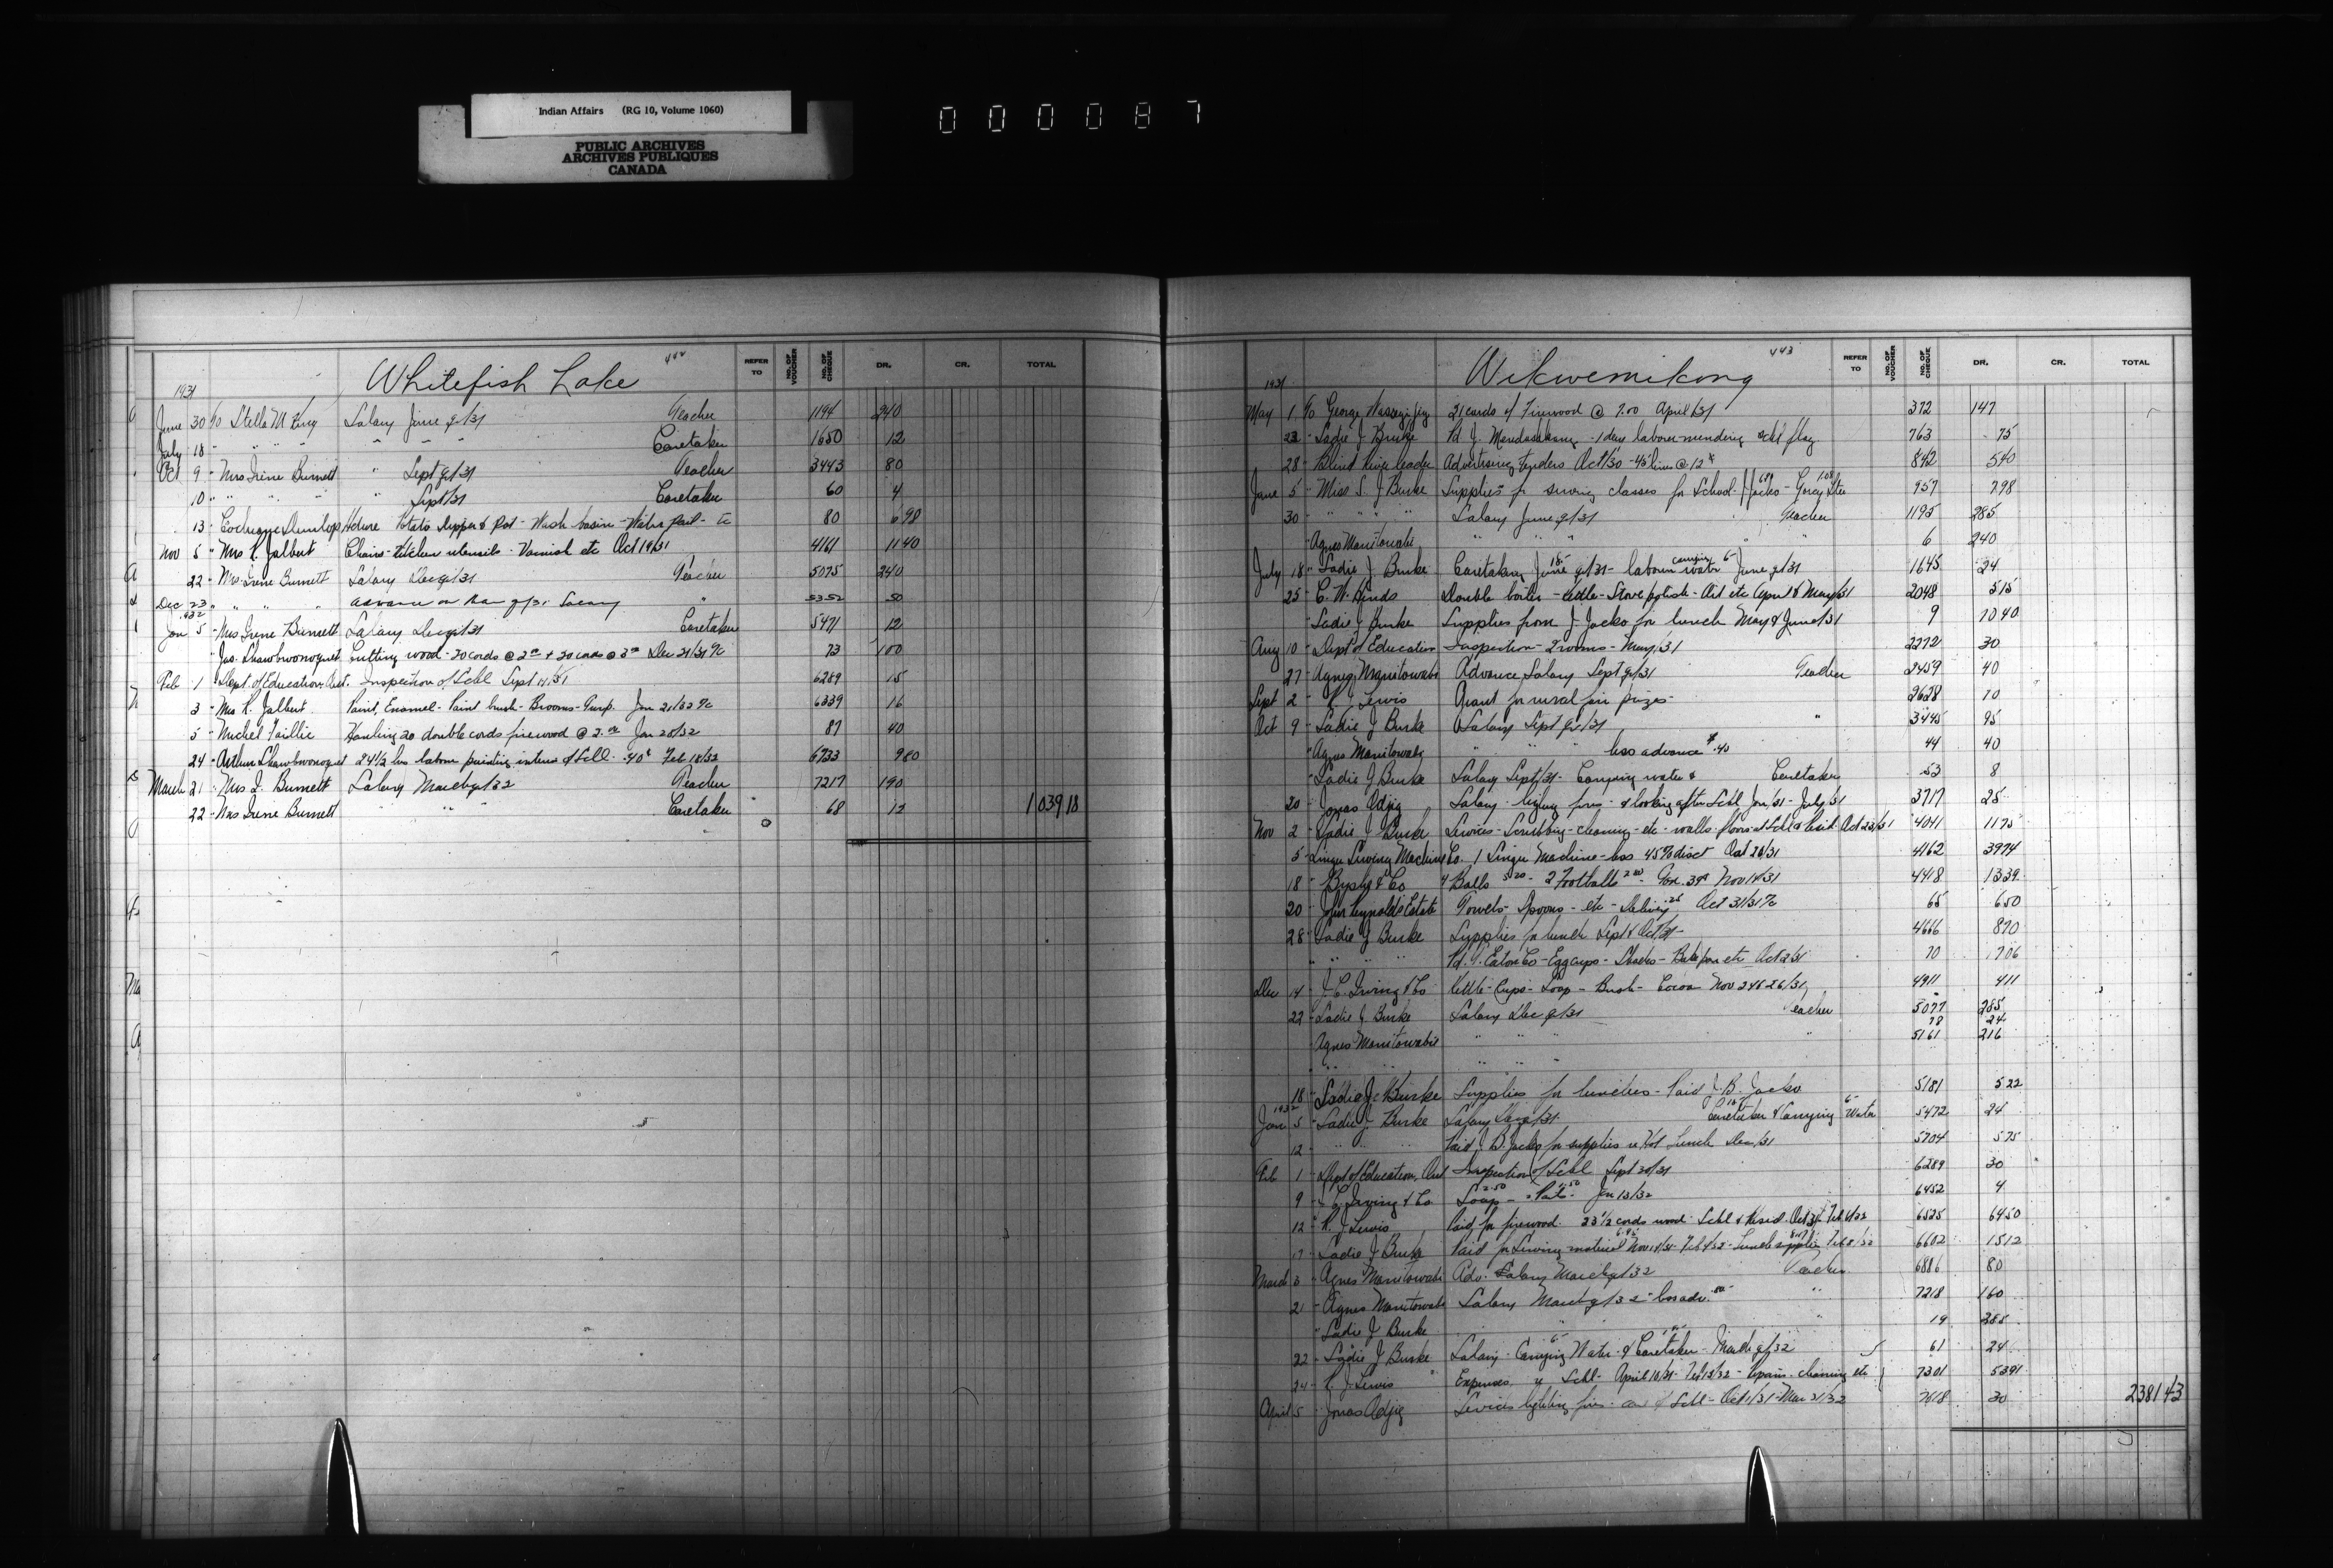 Indian Affairs (RG 10, Volume 1060)
PUBLIC ARCHIVES
ARCHIVES PUBLIQUES
CANADA
000087
Whitefish Lake 442
REFER TO NO. OF VOUCHER NO. OF CHEQUE DR. CR. TOTAL
1931
June 30 To Stella M King Salary June qr/31 Teacher 1194 240
July 18 " " " " " " " Caretaker 1650 12
Oct 9 " Mrs Irene Burnett " Sept qr/31 Teacher 3443 80
10 " " " " " Sept/31 Caretaker 60 4
13 " Cochrane Dunlop Hdwre Potato Dipper & Pot - Wash basin - Water Pail - etc 80 6 98
Nov 5 " Mrs R. Jalbert Chairs - Kitchen utensils - Varnish etc Oct 19/31 4161 11 40
22 " Mrs. Irene Burnett Salary Dec qr/31 Teacher 5075 240
Dec 23 " " " " Advance on Mar qr/31 Salary " 5352 50
1932
Jan 5 " Mrs Irene Burnett Salary Dec qr/31 Caretaker 5471 12
" Jas. Shawbwonoquet Cutting wood - 20 cords @ 2.00 + 20 cords @ 3.00 Dec 21/31 73 100
Feb 1 " Dept. of Education, Ont. Inspection of Schl Sept 14/31 6289 15
3 " Mrs R. Jalbert Paint, Enamel - Paint brush - Brooms - Turp. Jan 21/32 6339 16
5 " Michel Faillie Hauling 20 double cords firewood @ 2.00 Jan 28/32 87 40
24 " Arthur Shawbwonoquet 24 1/2 hrs labour painting interior of Schl .40¢ Feb 18/32 6733 9 80
March 21 " Mrs I. Burnett Salary March qr/32 Teacher 7217 190
22 " Mrs Irene Burnett " " " Caretaker 68 12 1039 18
Wikwemikong 443
REFER TO NO. OF VOUCHER NO. OF CHEQUE DR. CR. TOTAL
1931
May 1 To George 21 cords of Firewood @ 7.00 April/31 372 147
22 " Sadie J Burke Pd J. 1 day labour mending schl flag 763 75
28 " Blind River Leader Advertising tenders Oct/30 - 45 lines @ 12¢ 842 5 40
June 5 " Miss S. J Burke Supplies for sewing classes for School - J Jacko - 957 7 98
30 " " " " Salary June qr/31 Teacher 1195 285
" Agnes Manitowabi " " " " 6 240
July 18 " Sadie J. Burke Caretaking June qr/31 18- labour carrying water 6- June qr/31 1645 24
25 " C. W. Hinds Double boiler - kettle - Stove polish - Oil etc April & May/31 2048 5 15
" Sadie J Burke Supplies from J. Jacko for lunch May & June/31 9 10 40
Aug 10 " Dept of Education Inspection - 2 rooms - May/31 2272 30
27 " Agnes Manitowabi Advance Salary Sept qr/31 Teacher 2459 40
Sept 2 " R. J. Lewis Grant for rural fair prizes 2628 10
Oct 9 " Sadie J Burke Salary Sept qr/31 " 3445 95
" Agnes Manitowabi " " " less advance $40 44 40
" Sadie J Burke Salary Sept/31 - Carrying water & Caretaker 53 8
20 " Jonas Adjig Salary - lighting fires - & looking after Schl Jan/31 - July/31 3717 25
Nov 2 " Sadie J Burke Services - Scrubbing - cleaning - etc - walls - floors of Schl & Resid. Oct 23/31 4041 11 75
5 " Singer Sewing Machine Co. 1 Singer Machine - less 45% disct Oct 26/31 4162 39 74
18 " & Co 4 Balls 5.20 - 2 Footballs - Nov 14/31 4418 13 39
20 " John Reynolds Estate Towels - Spoons - etc - Delivery .25 Oct 31/31 65 6 50
28 " Sadie J Burke Supplies for lunch Sept & Oct/31 4666 8 70
" " " Pd. T. Eaton Co - Egg cups - Bake pan etc Oct 2/31 70 7 06
Dec 14 " J. C. Irving & Co Kettle - Cups - Soap - Brush - Cocoa Nov 24 & 26/31 4911 4 11
22 " Sadie J Burke Salary Dec qr/31 Teacher 5077 285
78 24
" Agnes Manitowabi " " " " 5161 216
" " " " "
18 " Sadie J Burke Supplies for lunches - Paid J. B. Jacko 5181 5 22
1932
Jan 5 " Sadie J. Burke Salary Dec qr/31 Caretaker 18- & Carrying Water 6- 5472 24
12 " " " Paid J. B. Jacko for supplies re Hot Lunch Dec/31 5704 5 75
Feb 1 " Dept of Education, Ont Inspection of Schl Sept 30/31 6289 30
9 " J. C. Irving & Co Soap 2.50 - 1.50 Jan 13/32 6452 4
12 " R. J. Lewis Paid for firewood 23 1/2 cords wood Schl & Resid Oct 31 - Feb 4/32 6525 64 50
17 " Sadie J Burke Paid for Sewing material 6.95 Nov 14/31 - Feb 4/32 - Lunch supplies 8.17 Feb 8/32 6602 15 12
March 3 " Agnes Manitowabi Adv. Salary March qr/32 Teacher 6886 80
21 " Agnes Manitowabi Salary March qr/32 - less adv. 80 " 7218 160
" Sadie J Burke " " " " 19 285
22 " Sadie J Burke Salary - Carrying Water 6- & Caretaker 18- March qr/32 61 24
24 " R. J. Lewis Expenses re Schl - April 10/31 - Feb 12/32 - Repairs - cleaning etc 7301 53 91
April 5 " Jonas Adjig Services lighting fires - care of Schl - Oct 1/31 - Mar 31/32 7618 30 2381 43